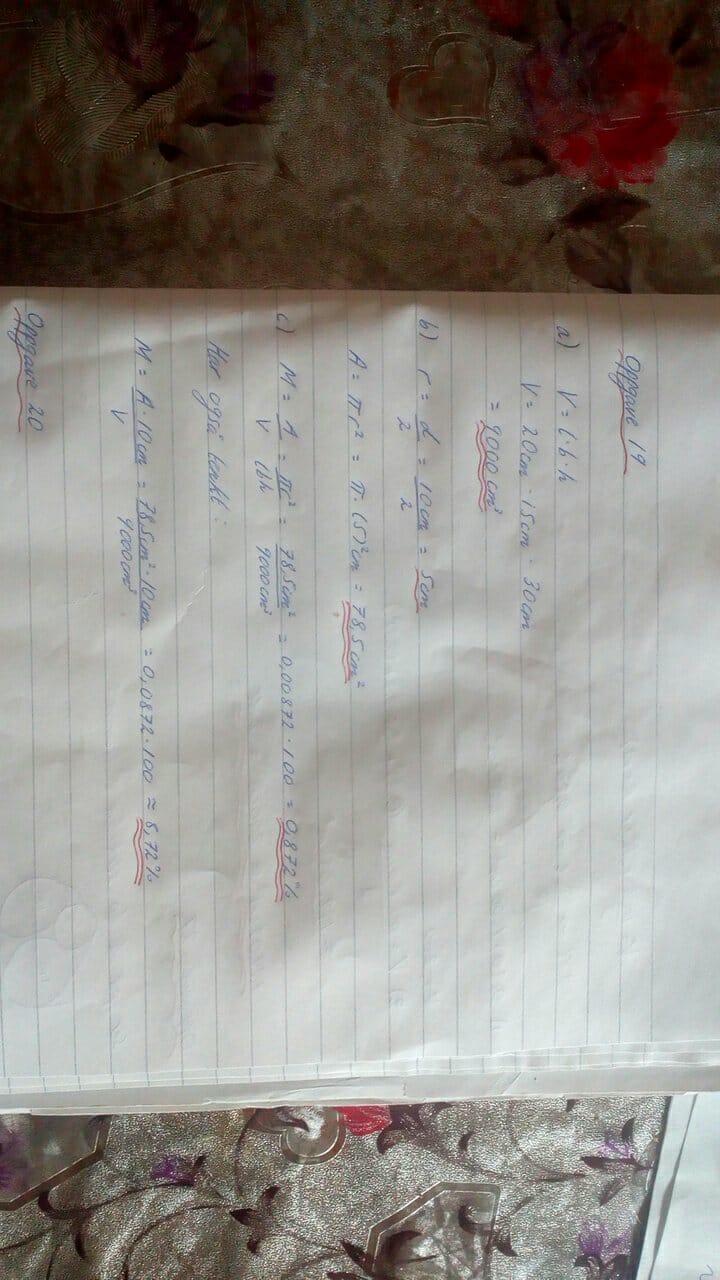 Oppgave 19
a) V = l · b · h
V = 20cm · 15cm · 30cm
= 9000cm³
b) r = d/2 = 10cm/2 = 5cm
A = πr² = π · (5)²cm = 78,5cm²
c) M = A/V = πr²/lbh = 78,5cm²/9000cm³ = 0,00872 · 100 = 0,872%
Har også tenkt :
M = A · 10cm/V = 78,5cm² · 10cm/9000cm³ = 0,0872 · 100 ≈ 8,72%
Oppgave 20